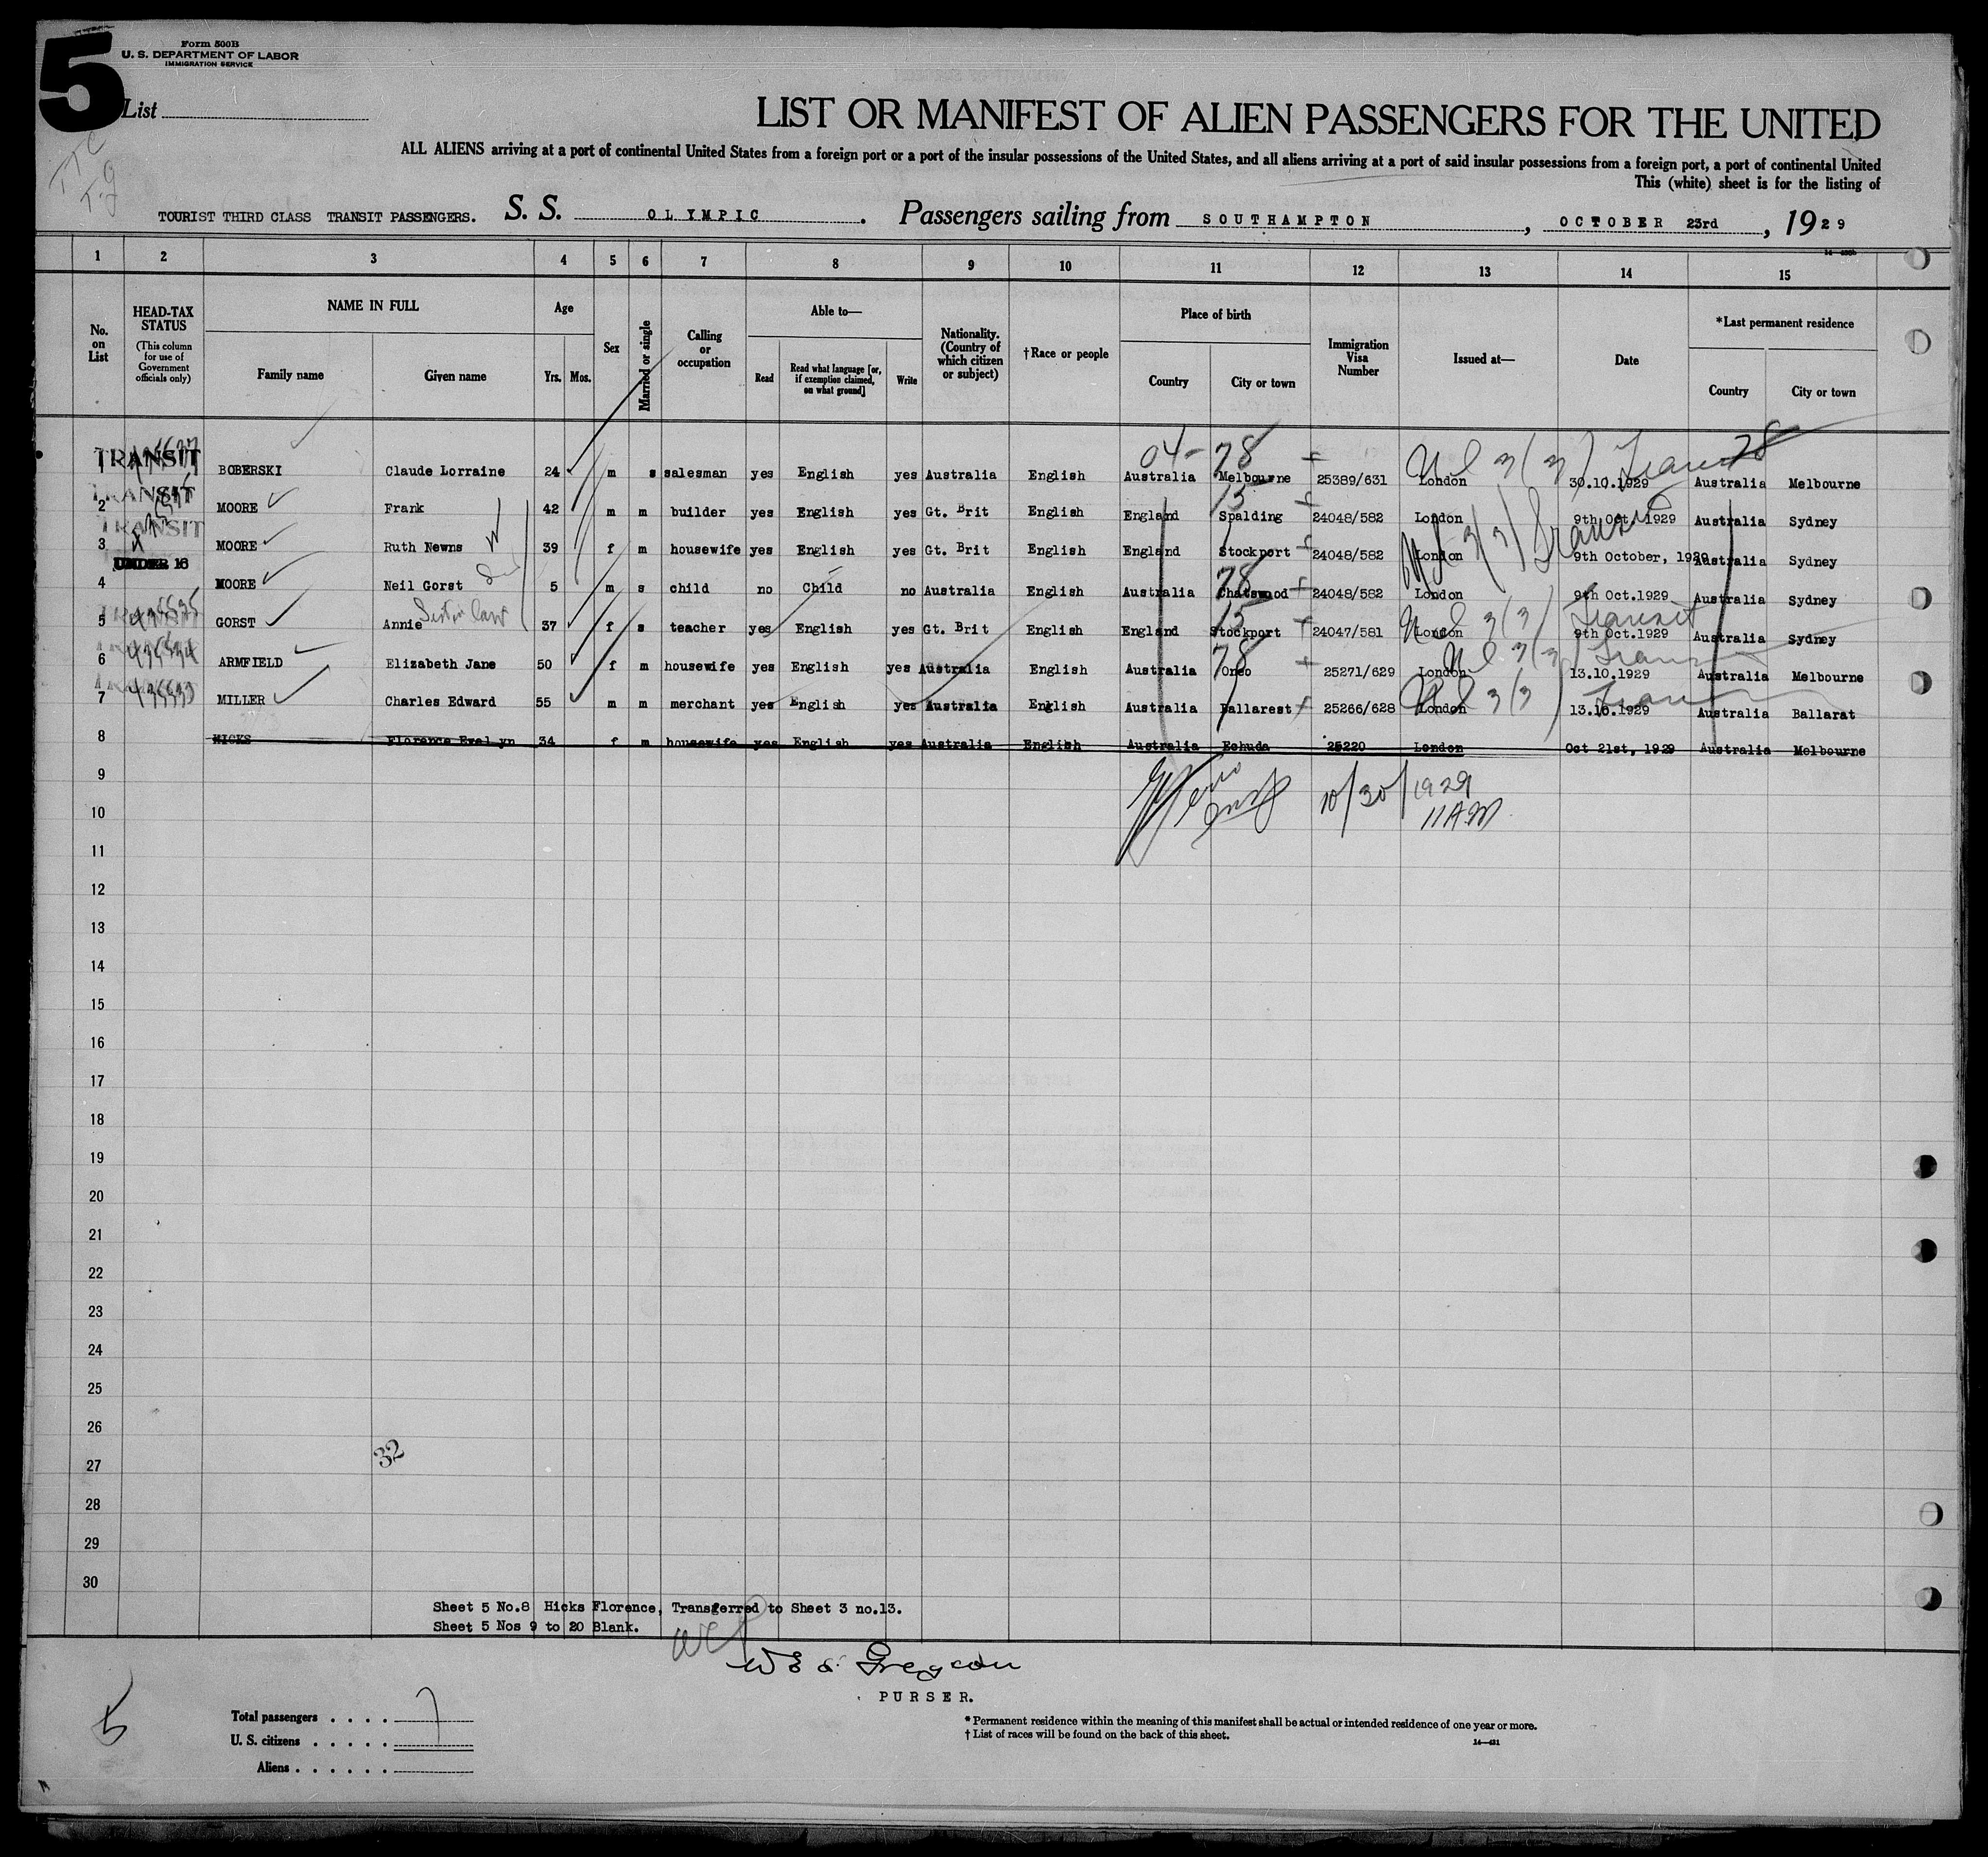 5
Form 500B
U. S. DEPARTMENT OF LABOR
IMMIGRATION SERVICE
List
LIST OR MANIFEST OF ALIEN PASSENGERS FOR THE UNITED
ALL ALIENS arriving at a port of continental United States from a foreign port or a port of the insular possessions of the United States, and all aliens arriving at a port of said insular possessions from a foreign port, a port of continental United
This (white) sheet is for the listing of
TOURIST THIRD CLASS TRANSIT PASSENGERS. S. S. OLYMPIC. Passengers sailing from SOUTHAMPTON, OCTOBER 23rd, 1929
1 2 3 4 5 6 7 8 9 10 11 12 13 14 15
No. on List
HEAD-TAX STATUS
(This column for use of Government officials only)
NAME IN FULL
Family name Given name
Age
Yrs. Mos.
Sex
Married or single
Calling or occupation
Able to—
Read Read what language [or, if exemption claimed, on what ground] Write
Nationality. (Country of which citizen or subject)
†Race or people
Place of birth
Country City or town
Immigration Visa Number
Issued at—
Date
*Last permanent residence
Country City or town
04- 78 78
TRANSIT
1 BOBERSKI Claude Lorraine 24 m s salesman yes English yes Australia English Australia Melbourne 25389/631 London 30.10.1929 Australia Melbourne
TRANSIT 15
2 MOORE Frank 42 m m builder yes English yes Gt. Brit English England Spalding 24048/582 London 9th Oct. 1929 Australia Sydney
TRANSIT
3 MOORE Ruth Newns 39 f m housewife yes English yes Gt. Brit English England Stockport 24048/582 London 9th October, 1929 Australia Sydney
UNDER 16 78
4 MOORE Neil Gorst 5 m s child no Child no Australia English Australia Chatswood 24048/582 London 9th Oct.1929 Australia Sydney
15 Transit
5 GORST Annie 37 f s teacher yes English yes Gt. Brit English England Stockport 24047/581 London 9th Oct.1929 Australia Sydney
78
6 ARMFIELD Elizabeth Jane 50 f m housewife yes English yes Australia English Australia Omeo 25271/629 London 13.10.1929 Australia Melbourne
7 MILLER Charles Edward 55 m m merchant yes English yes Australia English Australia Ballarest 25266/628 London 13.10.1929 Australia Ballarat
8 HICKS Florence Evelyn 34 f m housewife yes English yes Australia English Australia Echuda 25220 London Oct 21st, 1929 Australia Melbourne
9
10/30/1929
10
11AM
11
12
13
14
15
16
17
18
19
20
21
22
23
24
25
26
32
27
28
29
30
Sheet 5 No.8 Hicks Florence, Transferred to Sheet 3 no.13.
Sheet 5 Nos 9 to 20 Blank.
PURSER.
5
Total passengers . . . . 7
U. S. citizens . . . . .
Aliens . . . . . .
* Permanent residence within the meaning of this manifest shall be actual or intended residence of one year or more.
† List of races will be found on the back of this sheet.